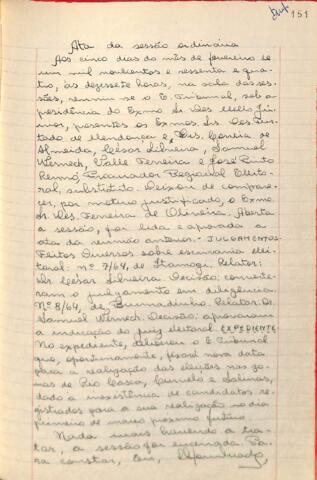 151
Ata da sessão ordinária
Aos cinco dias do mês de fevereiro de
um mil novecentos e sessenta e qua-
tro, às dezessete horas, na sala das ses-
sões, reuniu-se o E. Tribunal, sob a
presidência do Exmo Sr. Des. Mello Jú-
nior, presentes os Exmos. Srs. Des. Fur-
tado de Mendonça e Drs. Correia de
Almeida, César Silveira, Samuel
Werneck, Valle Ferreira e José Pinto
Renno Procurador Regional Eleito-
ral, substituto. Deixou de compare-
cer, por motivo justificado, o Exmo.
Sr. Des. Ferreira de Oliveira. Aberta
a sessão, foi lida e aprovada a
ata da reunião anterior.- JULGAMENTOS
Feitos diversos sobre escrivania elei-
toral: nº 7/64, de Itamogi. Relator:
Dr. César Silveira. Decisão: converte-
ram o julgamento em diligência.
Nº 8/64, de Brumadinho. Relator: Dr.
Samuel Werneck. Decisão: aprovaram
a indicação do juiz eleitoral. EXPEDIENTE
No expediente, deliberou o E. Tribunal
que, oportunamente, fixará nova data
para a realização das eleições nas zo-
nas de Rio Casca, Curvelo e Salinas,
dado a inexistência de candidatos re-
gistrados para a sua realização no dia
primeiro de março próximo futuro
Nada mais havendo a tra-
tar, a sessão foi encerrada. Pa-
ra constar, eu,